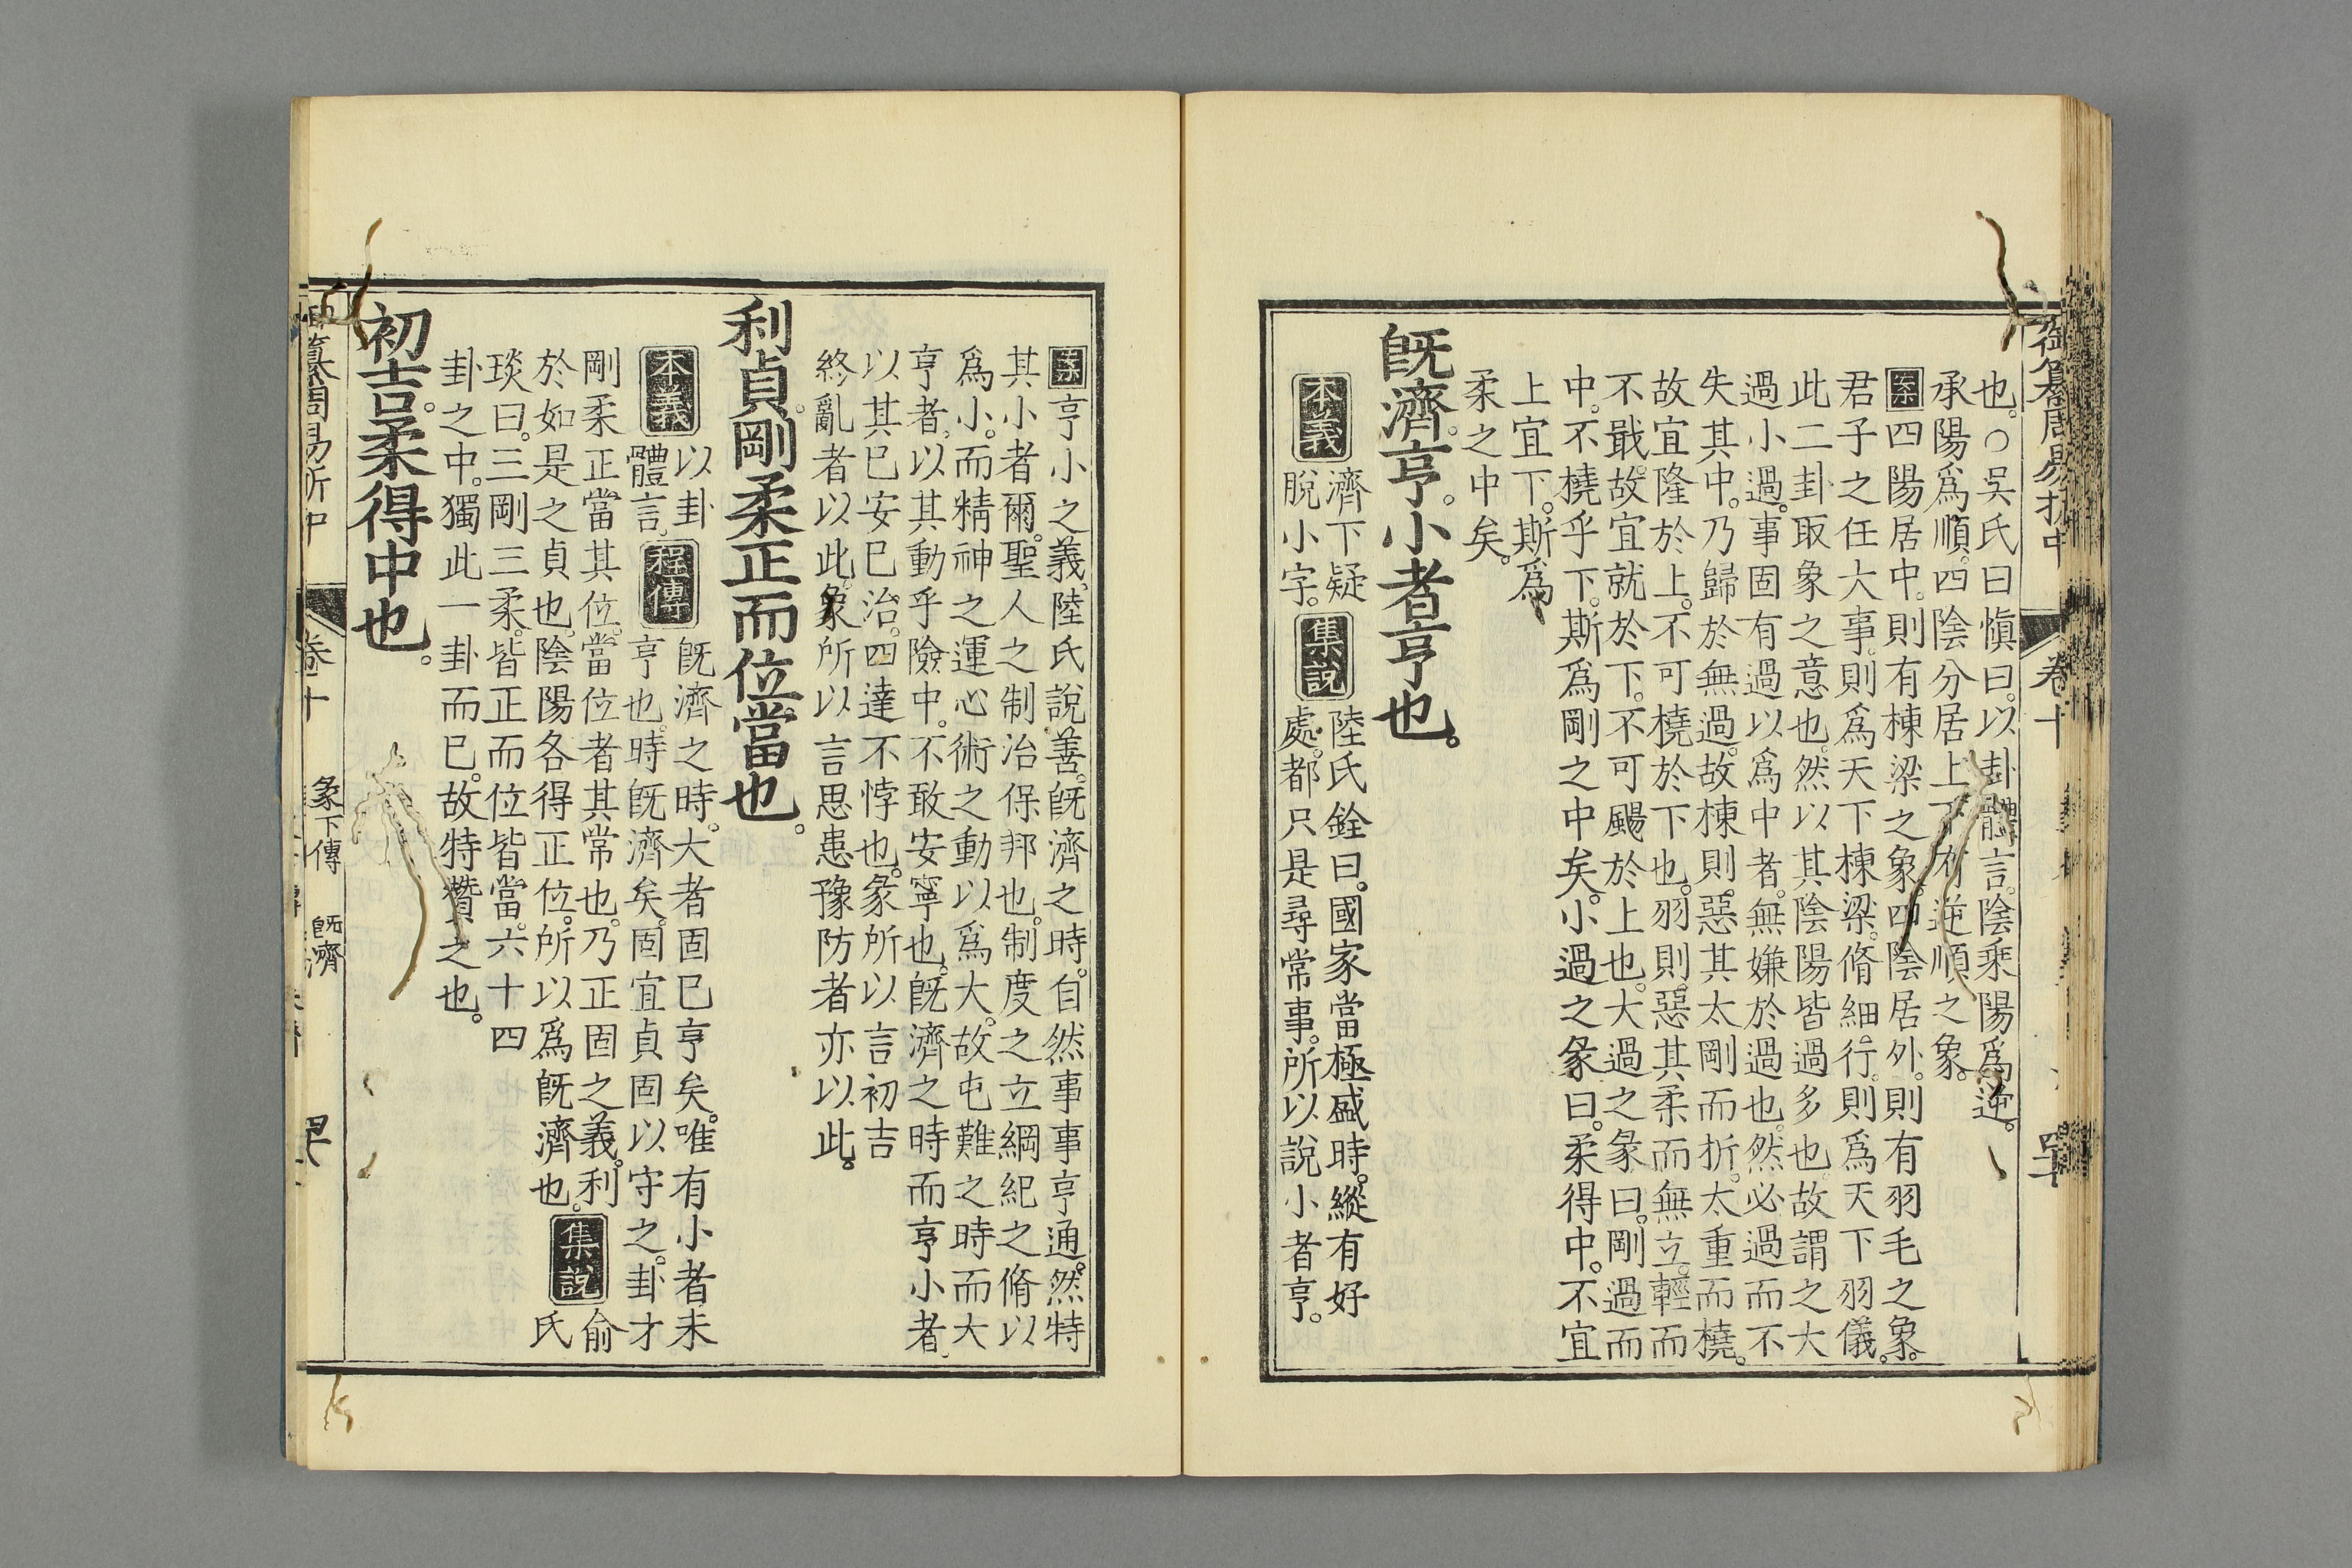 御纂周易折中 卷十
也。○吳氏曰愼曰。以卦體言。陰乘陽爲逆。
承陽爲順。四陰分居上下。有逆順之象。
案四陽居中。則有棟梁之象。四陰居外。則有羽毛之象。
君子之任大事。則爲天下棟梁。脩細行。則爲天下羽儀。
此二卦取象之意也。然以其陰陽皆過多也。故謂之大
過小過。事固有過以爲中者。無嫌於過也。然必過而不
失其中。乃歸於無過。故棟則。惡其太剛而折。太重而橈。
故宜隆於上。不可橈於下也。羽則。惡其柔而無立。輕而
不戢。故宜就於下。不可颺於上也。大過之彖曰。剛過而
中。不橈乎下。斯爲剛之中矣。小過之彖曰。柔得中。不宜
上宜下。斯爲
柔之中矣。
旣濟亨。小者亨也。
本義
濟下疑
脫小字。
集說
陸氏銓曰。國家當極盛時。縱有好
處。都只是尋常事。所以說小者亨。
案亨小之義。陸氏說善。旣濟之時。自然事事亨通。然特
其小者爾。聖人之制治保邦也。制度之立綱紀之脩以
爲小。而精神之運心術之動以爲大。故屯難之時而大
亨者。以其動乎險中。不敢安寧也。旣濟之時而亨小者
以其已安已治。四達不悖也。彖所以言初吉
終亂者以此。象所以言思患豫防者亦以此。
利貞。剛柔正而位當也。
本義
以卦
體言。
程傳
旣濟之時。大者固已亨矣。唯有小者未
亨也。時旣濟矣。固宜貞固以守之。卦才
剛柔正當其位。當位者其常也。乃正固之義。利
於如是之貞也。陰陽各得正位。所以爲旣濟也。
集說
俞氏
琰曰。三剛三柔。皆正而位皆當。六十四
卦之中。獨此一卦而已。故特贊之也。
初吉。柔得中也。
纂周易折中 卷十 彖下傳 旣濟